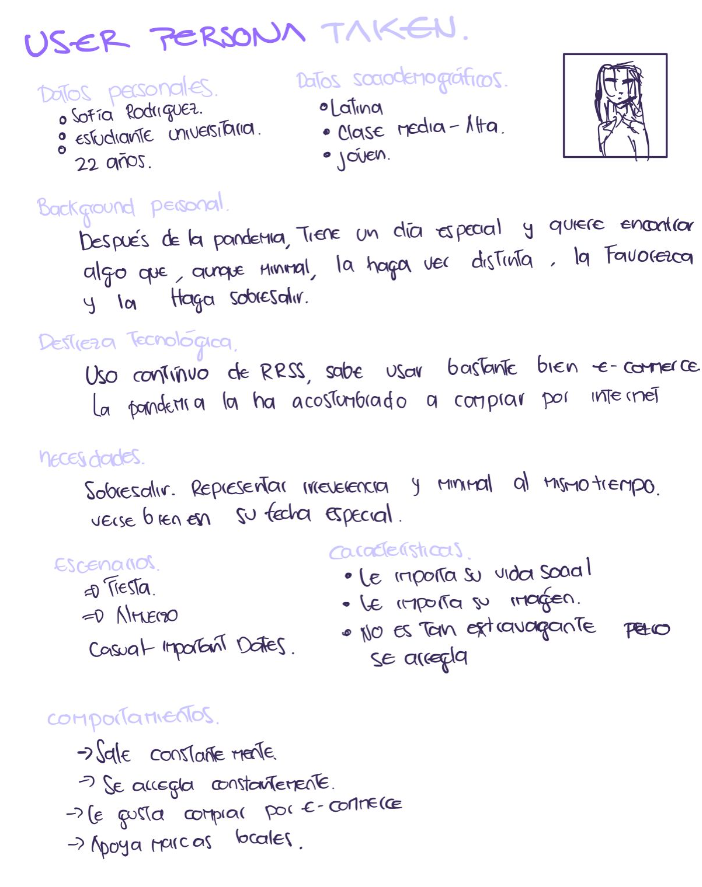 USER PERSONA TAKEN.
Datos personales.
• Sofía Rodriguez.
• estudiante universitaria.
• 22 años.
Datos sociodemográficos.
• Latina
• Clase media-Alta.
• joven.
Background personal.
Después de la pandemia, tiene un día especial y quiere encontrar
algo que, aunque minimal, la haga ver distinta, la favorezca
y la haga sobresalir.
Destreza Tecnológica.
Uso continuo de RRSS, sabe usar bastante bien e-commerce
La pandemia la ha acostumbrado a comprar por internet
necesidades.
Sobresalir. Representar irreverencia y minimal al mismo tiempo.
verse bien en su fecha especial.
Escenarios.
⇒ Fiesta.
⇒ Almuerzo
Casual-Important Dates.
Características.
• Le importa su vida social
• Le importa su imagen.
• No es tan extravagante pero
se arregla
comportamientos.
→ Sale constantemente.
→ Se arregla constantemente.
→ Le gusta comprar por e-commerce
→ Apoya marcas locales.